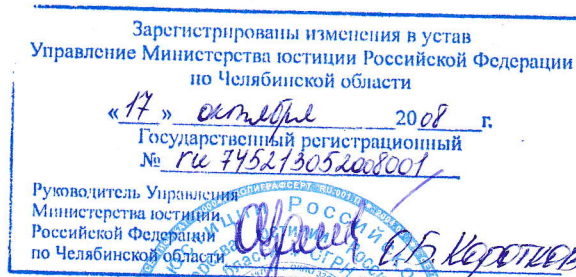 Зарегистрированы изменения в устав
Управление Министерства юстиции Российской Федерации
по Челябинской области
«17» октября 2008 г.
Государственный регистрационный
№ ru 745213052008001
Руководитель Управления
Министерства юстиции
Российской Федерации
по Челябинской области